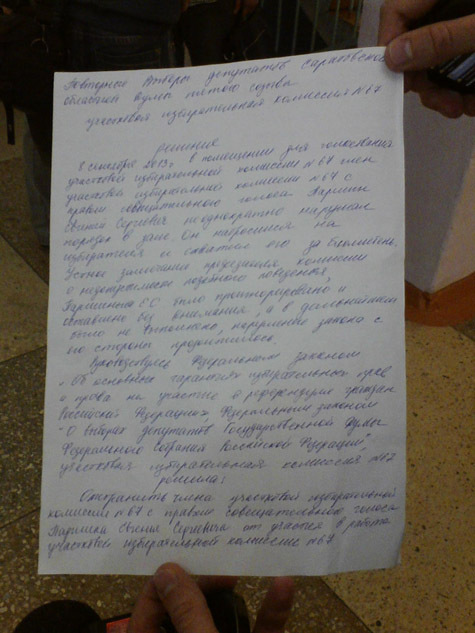 Повторные выборы депутатов Саратовской
областной Думы пятого созыва
участковая избирательная комиссия №67
решение
8 сентября 2013г. в помещении для голосования
участковой избирательной комиссии №67 член
участковой избирательной комиссии №67 с
правом совещательного голоса
Сергеевич неоднократно нарушал
порядок в зале. Он набросился на
избирателя и его за бюллетень.
Устное замечание председателя комиссии
о недопустимости подобного поведения,
Е.С. было проигнорировано и
оставлено без внимания, а в дальнейшем
было не выполнено, нарушение закона с
его стороны продолжилось.
Руководствуясь Федеральным законом
"Об основных гарантиях избирательных прав
и права на участие в референдуме граждан
Российской Федерации", Федеральным законом
"О выборах депутатов Государственной Думы
Федерального собрания Российской Федерации",
участковая избирательная комиссия №67
решила:
Отстранить члена участковой избирательной
комиссии №67 с правом совещательного голоса
Сергеевича от участия в работе
участковой избирательной комиссии №67.